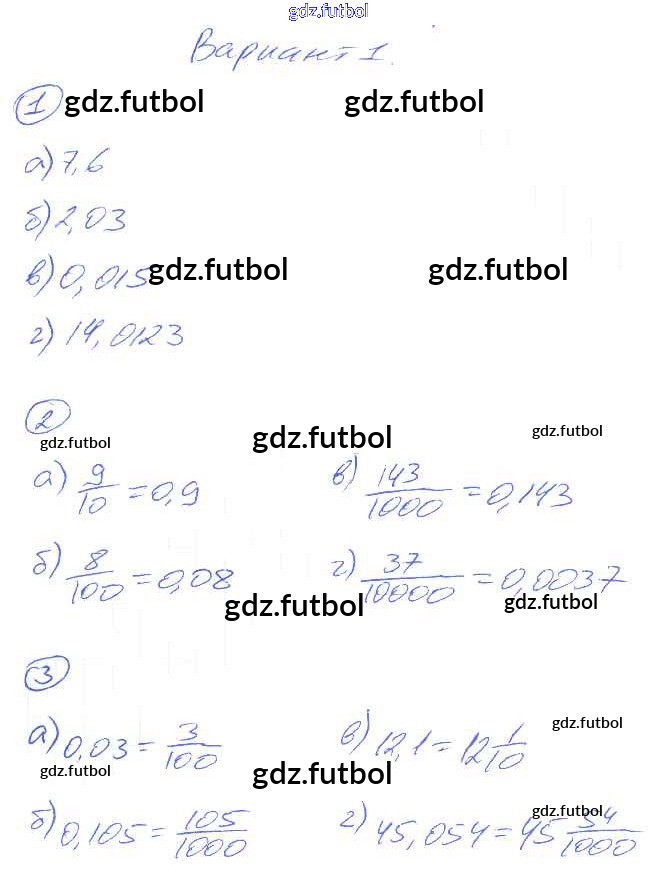 gdz.futbol
Вариант 1.
1 gdz.futbol gdz.futbol
а) 7,6
б) 2,03
в) 0,015 gdz.futbol gdz.futbol
г) 14,0123
2
gdz.futbol gdz.futbol gdz.futbol
а) 9/10 = 0,9 в) 143/1000 = 0,143
б) 8/100 = 0,08 г) 37/10000 = 0,0037
gdz.futbol gdz.futbol
3
а) 0,03 = 3/100 в) 12,1 = 12 1/10 gdz.futbol
gdz.futbol gdz.futbol
б) 0,105 = 105/1000 г) 45,054 = 45 54/1000 gdz.futbol